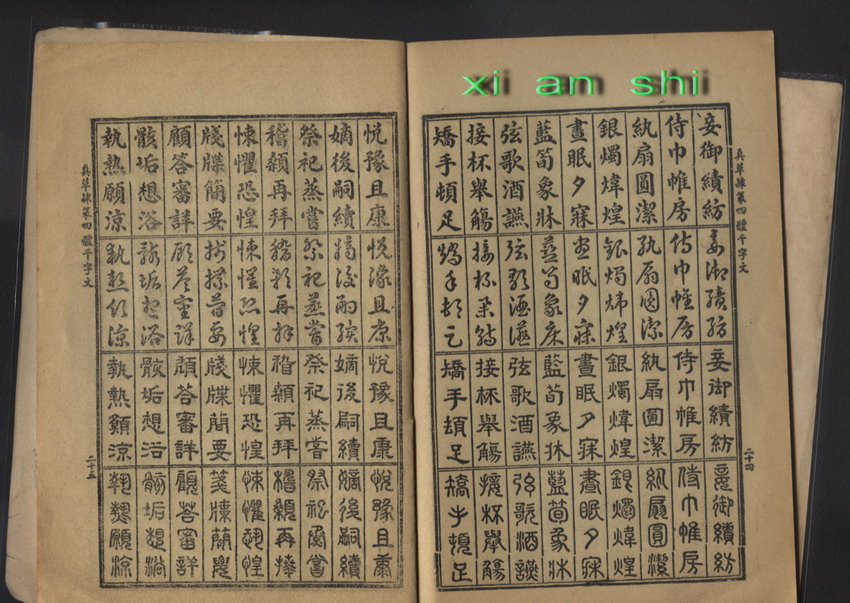 xii an shii
真草隸篆四體千字文
二十四
妾御績紡 妾御績紡 妾御績紡 妾御績紡
侍巾帷房 侍巾帷房 侍巾帷房 侍巾帷房
紈扇圓潔 紈扇圓潔 紈扇圓潔 紈扇圓潔
銀燭煒煌 銀燭煒煌 銀燭煒煌 銀燭煒煌
晝眠夕寐 晝眠夕寐 晝眠夕寐 晝眠夕寐
藍筍象牀 藍筍象床 藍筍象牀 藍筍象牀
弦歌酒讌 弦歌酒讌 弦歌酒讌 弦歌酒讌
接杯舉觴 接杯舉觴 接杯舉觴 接杯舉觴
矯手頓足 矯手頓足 矯手頓足 矯手頓足
悅豫且康 悅豫且康 悅豫且康 悅豫且康
嫡後嗣續 嫡後嗣續 嫡後嗣續 嫡後嗣續
祭祀蒸嘗 祭祀蒸嘗 祭祀蒸嘗 祭祀蒸嘗
稽顙再拜 稽顙再拜 稽顙再拜 稽顙再拜
悚懼恐惶 悚懼恐惶 悚懼恐惶 悚懼恐惶
牋牒簡要 牋牒簡要 牋牒簡要 牋牒簡要
顧答審詳 顧答審詳 顧答審詳 顧答審詳
骸垢想浴 骸垢想浴 骸垢想浴 骸垢想浴
執熱願涼 執熱願涼 執熱願涼 執熱願涼
真草隸篆四體千字文
二十五